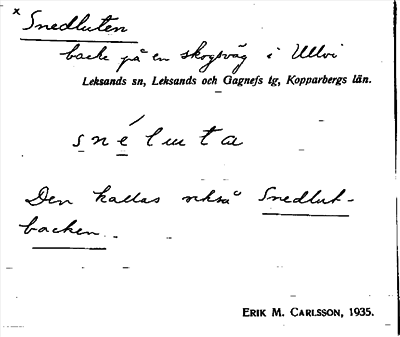 x Snedluten
backe på en skogsväg i Ullvi
Leksands sn, Leksands och Gagnefs tg, Kopparbergs län.
Den kallas också Snedlut-
backen
ERIK M. CARLSSON, 1935.